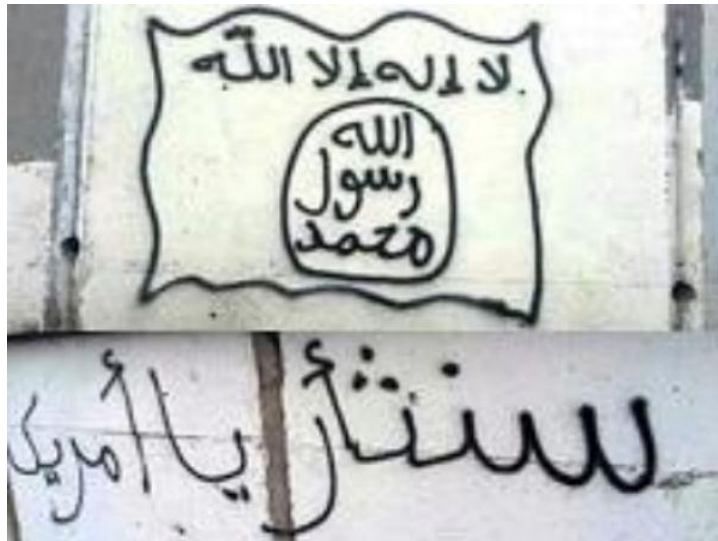 لا إله إلا اللّه
الله
رسول
محمد
سنثأر يا أمريك